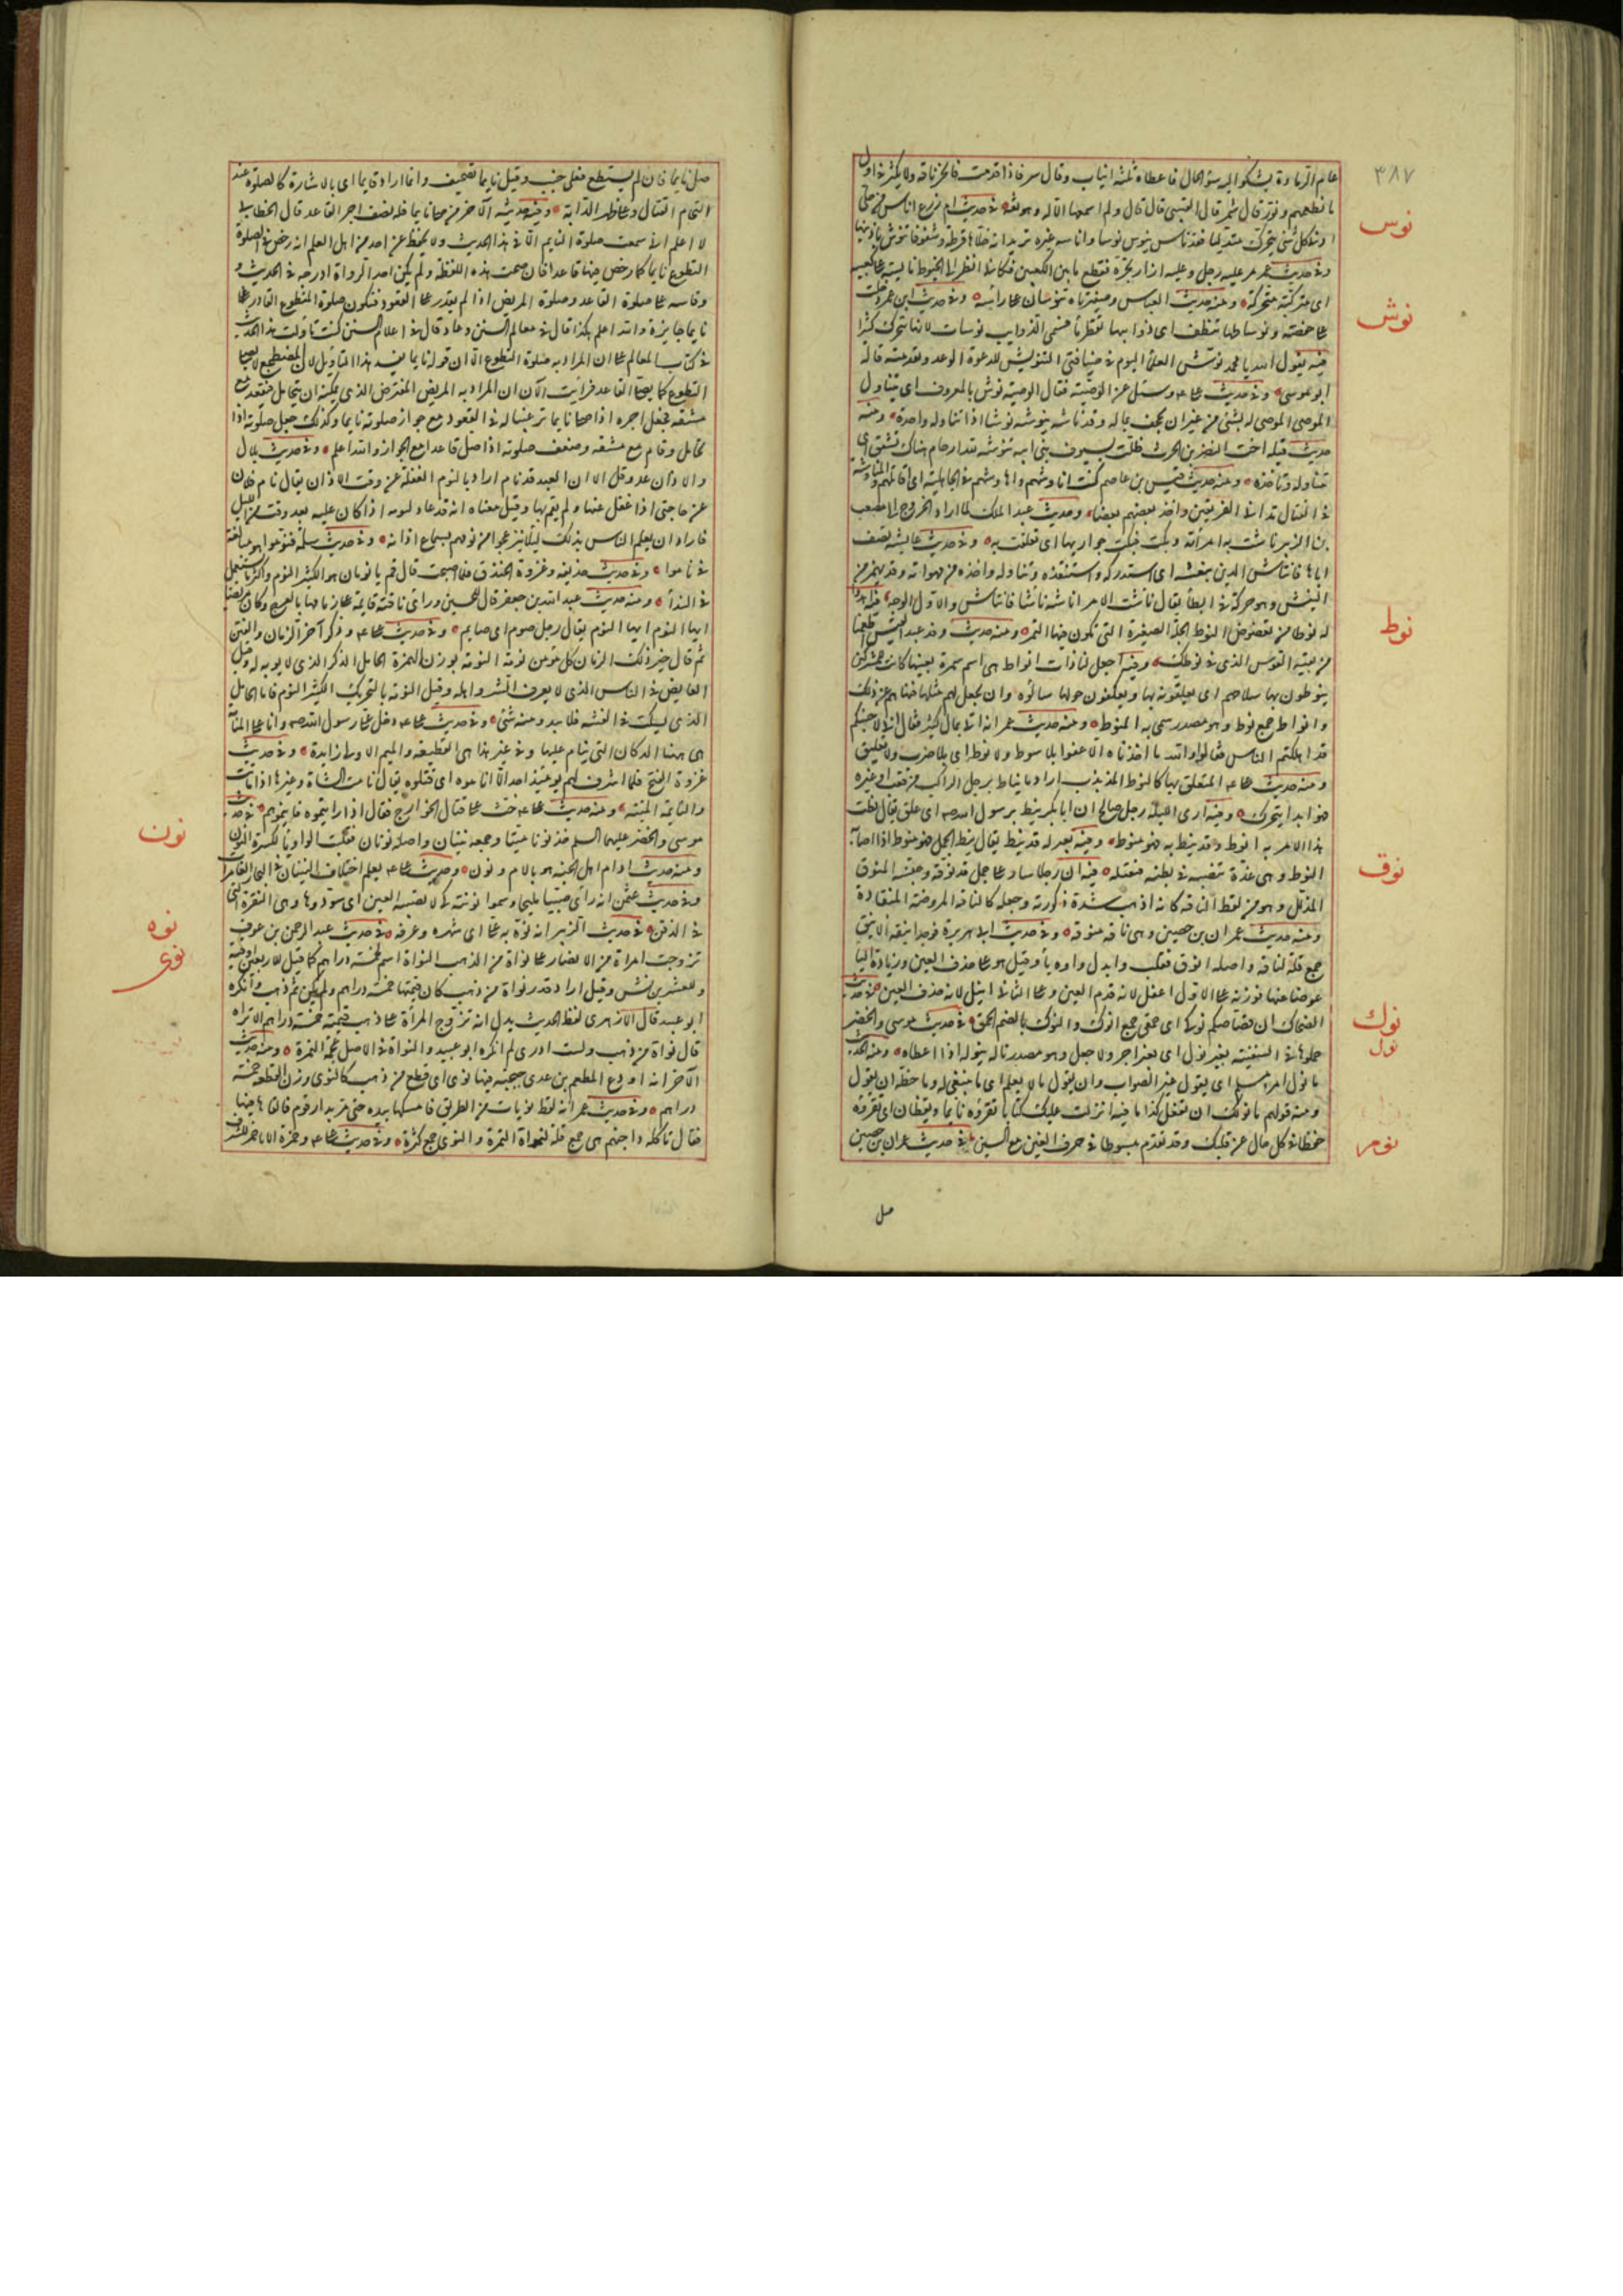 ٣٨٧
عام الرمادة يشكو اليه سوء الحال فاعطاه ثلثة انياب وقال سر فاذا قدمت فانحر ناقة ولا يكثر في اول
ما تطعمهم ونوّز قال شمر قال القعنبي قال ولم اسمعها الا له وهو ثقة في حديث ام زرع اناس من حلي
نوس
اذني كل شئ يتحرك متدليا فقد ناس ينوس نوسا واناسه غيره تريد انه حلاها قرطة وشنوفا تنوس باذنيها
وفي حديث عمر مر عليه رجل وعليه ازار يجره فقطع ما بين الكعبين فكاني انظر الى الخيوط نايسة على كعبيه
اى متدلية متحركة ومنه حديث العباس وضفيرتاه تنوسان على رأسه وفي حديث ابن عمر دخلت
نوش
على حفصة ونوساتها تنطف اى ذوائبها تقطر ماء فسمى الذوائب نوسات لانها تتحرك كثيرا
فيه يقول الله يا محمد نوّش العلماء اليوم في ضيافتي التنويش للدعوة الوعد وتقدمته قاله
ابو موسى وفي حديث على وسئل عن الوصية فقال الوصية نوش بالمعروف اى يتناول
الموصى الموصى له بشئ من غير ان يجحف بماله وقد ناشه ينوشه نوشا اذا تناوله واخذه ومنه
حديث قتيلة اخت النضر بن الحرث ظلت سيوف بني ابيه تنوشه لله ارحام هناك تشقق اى
تتناوله وتاخذه ومنه حديث قيس بن عاصم كنت اناوشهم واهاوشهم في الجاهلية اى اقاتلهم والمناوشة
في القتال تداني الفريقين واخذ بعضهم بعضا وحديث عبد الملك لما اراد الخروج الى مصعب
بن الزبير ناشت به امرأته وبكت فبكت جواريها اى تعلقت به وفي حديث عايشة تصف
اباها فانتاش الدين بنعشه اى استدركه واستنقذه وتناوله واخذه من مهواته وقد يهمز من
النئيش وهو حركة في ابطاء يقال نأشت الامر انأشه نأشا فانتأش والاول الوجه فيه اهدوا
نوط
له نوطا من تعضوض النوط الجلة الصغيرة التي يكون فيها التمر ومنه حديث وفد عبد القيس اطعمنا
من بقية القوس الذي في نوطك وفيه اجعل لنا ذات انواط هى اسم سمرة بعينها كانت للمشركين
ينوطون بها سلاحهم اى يعلقونه بها ويعكفون حولها سألوه ان يجعل لهم مثلها فنهاهم عن ذلك
وانواط جمع نوط وهو مصدر سمى به المنوط ومنه حديث عمر انه اتى بمال كثير فقال اني لاحسبكم
قد اهلكتم الناس فقالوا والله ما اخذناه الا عفوا بلا سوط ولا نوط اى بلا ضرب ولا تعليق
ومنه حديث على المتعلق بها كالنوط المذبذب اراد ما يناط برحل الراكب من قعب او غيره
فهو ابدا يتحرك وفيه ارى الليلة رجل صالح ان ابا بكر نيط برسول الله اى علق يقال نطت
هذا الامر به انوط وقد نيط به فهو منوط وفيه بعير له قد نيط يقال نيط الجمل فهو منوط اذا اصابه
نوق
النوط وهى غدة تصيبه في بطنه فتقتله فيه ان رجلا سار على جمل قد نوقه وخيسه المنوق
المذلل وهو من لفظ الناقة كانه اذهب شدة ذكورته وجعله كالناقة المروضة المنقادة
ومنه حديث عمران بن حصين وهى ناقة منوقة وفي حديث ابى هريرة فوجد اينقه الاينق
جمع قلة لناقة واصله انوق فقلب وابدل واوه ياء وقيل هو على حذف العين وزيادة الياء
عوضا عنها فوزنه على الاول اعفل لانه قدم العين وعلى الثاني ايفل لانه حذف العين في حديث
نوك
الضحاك ان قصاصكم نوكى اى حمقى جمع انوك والنوك بالضم الحمق في حديث موسى والخضر
نول
حملوهما في السفينة بغير نول اى بغير اجر ولا جعل وهو مصدر ناله ينوله اذا اعطاه ومنه الحديث
ما نول امرئ مسلم ان يقول غير الصواب وان يقول ما لا يعلم اى ما ينبغي له وما حظه ان يقول
ومنه قولهم ما نولك ان تفعل كذا فيه انزلت عليك كتابا تقرؤه نايما ويقظان اى تقرؤه
نوم
حفظا في كل حال عن قلبك وقد تقدم مبسوطا في حرف الغين مع السين في حديث عمران بن حصين
صل
صل نايما فان لم يستطع فعلى جنب وقيل نايما تصحيف وانما اراد قايما اى بالاشارة كالصلوة عند
التحام القتال وعلى ظهر الدابة وفي حديثه الآخر من صلى نايما فله نصف اجر القاعد قال الخطابي
لا اعلم اني سمعت صلوة النايم الا في هذا الحديث ولا يحفظ عن احد من اهل العلم انه رخص في صلوة
التطوع نايما كما رخص فيها قاعدا فان صحت هذه اللفظة ولم يكن احد الرواة ادرجه في الحديث و
وقاسه على صلوة القاعد وصلوة المريض اذا لم يقدر على القعود فتكون صلوة المتطوع القادر على
نايما جايزة والله اعلم هكذا قال في معالم السنن وعاد قال في اعلام السنن كنت تاولت هذا الحديث
في كتاب المعالم على ان المراد به صلوة التطوع الا ان قوله نايما يفسد هذا التاويل لان المضطجع لا يصلي
التطوع كما يصلي القاعد فرأيت الآن ان المراد به المريض المفترض الذي يمكنه ان يتحامل فيقعد مع
مشقة فجعل اجره اذا صلى نايما ترغيبا له في القعود مع جواز صلوته نايما وكذلك جعل صلوته اذا
تحامل وقام مع مشقة وضعف صلوته اذا صلى قاعدا مع الجواز والله اعلم وفي حديث بلال
والاذان عد وقل الا ان العبد قد نام اراد بالنوم الغفلة عن وقت الاذان يقال نام فلان
عن حاجتي اذا غفل عنها ولم يقم بها وقيل معناه انه قد عاد لنومه اذا كان عليه بعد وقت من الليل
فاراد ان يعلم الناس بذلك ليلا ينزعجوا من نومهم بسماع اذانه وفي حديث سلمة فنوموا هو مبالغة
في ناموا وفي حديث حذيفة وغزوة الخندق فلما اصبحت قال قم يا نومان هو الكثير النوم واكثر ما يستعمل
في النداء ومنه حديث عبد الله بن جعفر قال للحسين ورأى ناقته قايمة على زمامها بالعرج وكان مريضا
ايها النوم ايها النوم يقال رجل صوم اى صايم وفي حديث على وذكر آخر الزمان والفتن
ثم قال خير ذلك الزمان كل مؤمن نومة النومة بوزن الهمزة الخامل الذكر الذي لا يوبه له وقيل
الغامض في الناس الذي لا يعرف الشر واهله وقيل النومة بالتحريك الكثير النوم فاما الخامل
الذي يسكت في الفتنة فلا يبدو منه شئ وفي حديث على دخل على رسول الله وانا على المنامة
هى ههنا الدكان التي ينام عليها وفي غير هذا هى القطيفة والميم الاولى زايدة وفي حديث
غزوة الفتح فما اشرف لهم يومئذ احد الا اناموه اى قتلوه يقال نامت الشاة وغيرها اذا ماتت
والنايمة الميتة ومنه حديث على حث على قتال الخوارج فقال اذا رايتموهم فانيموهم في حديث
نون
موسى والخضر عليهما السلم خذ نونا ميتا وجمعه نينان واصله نونان فقلبت الواو ياء لكسرة النون
ومنه حديث ادام اهل الجنة هو بالام ونون وحديث على يعلم اختلاف النينان في البحار الغامرات
وفي حديث عثمن انه رأى صبيا مليحا وسموا نونته كى لا تصيبه العين اى سودوها وهى النقرة التي
نوه
في الذقن في حديث الزبير انه نوه به على اى شهره وعرفه في حديث عبد الرحمن بن عوف
نوى
تزوجت امراة من الانصار على نواة من الذهب النواة اسم لخمسة دراهم كما قيل للاربعين اوقية
وللعشرين نش وقيل اراد قدر نواة من ذهب كان قيمتها خمسة دراهم ولم يكن ثم ذهب وانكره
ابو عبيد قال الازهرى لفظ الحديث يدل انه تزوج المرأة على ذهب قيمته خمسة دراهم الا تراه
قال نواة من ذهب ولست ادرى لم انكره ابو عبيد والنواة في الاصل عجمة التمرة ومنه حديث
الآخر انه اودع المطعم بن عدى جبجبة فيها نوى اى قطع من ذهب كالنوى وزن القطعة خمسة
دراهم وفي حديث عمر انه لقط نويات من الطريق فامسكها بيده حتى مر بدار قوم فالقاها فيها
فقال تاكله داجنهم هى جمع قلة لنواة التمرة والنوى جمع كثرة وفي حديث على وحمزة الا يا حمز للشرف